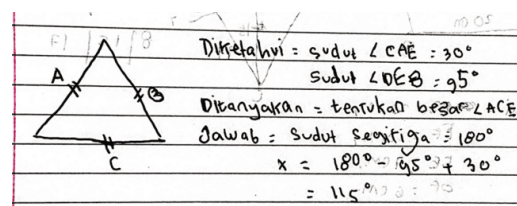 Diketahui = sudut ∠CAE = 30°
Sudut ∠DEB = 95°
A
B
Ditanyakan = tentukan besar ∠ACE
Jawab = Sudut Segitiga = 180°
C
x = 180° - 95° + 30°
= 115°